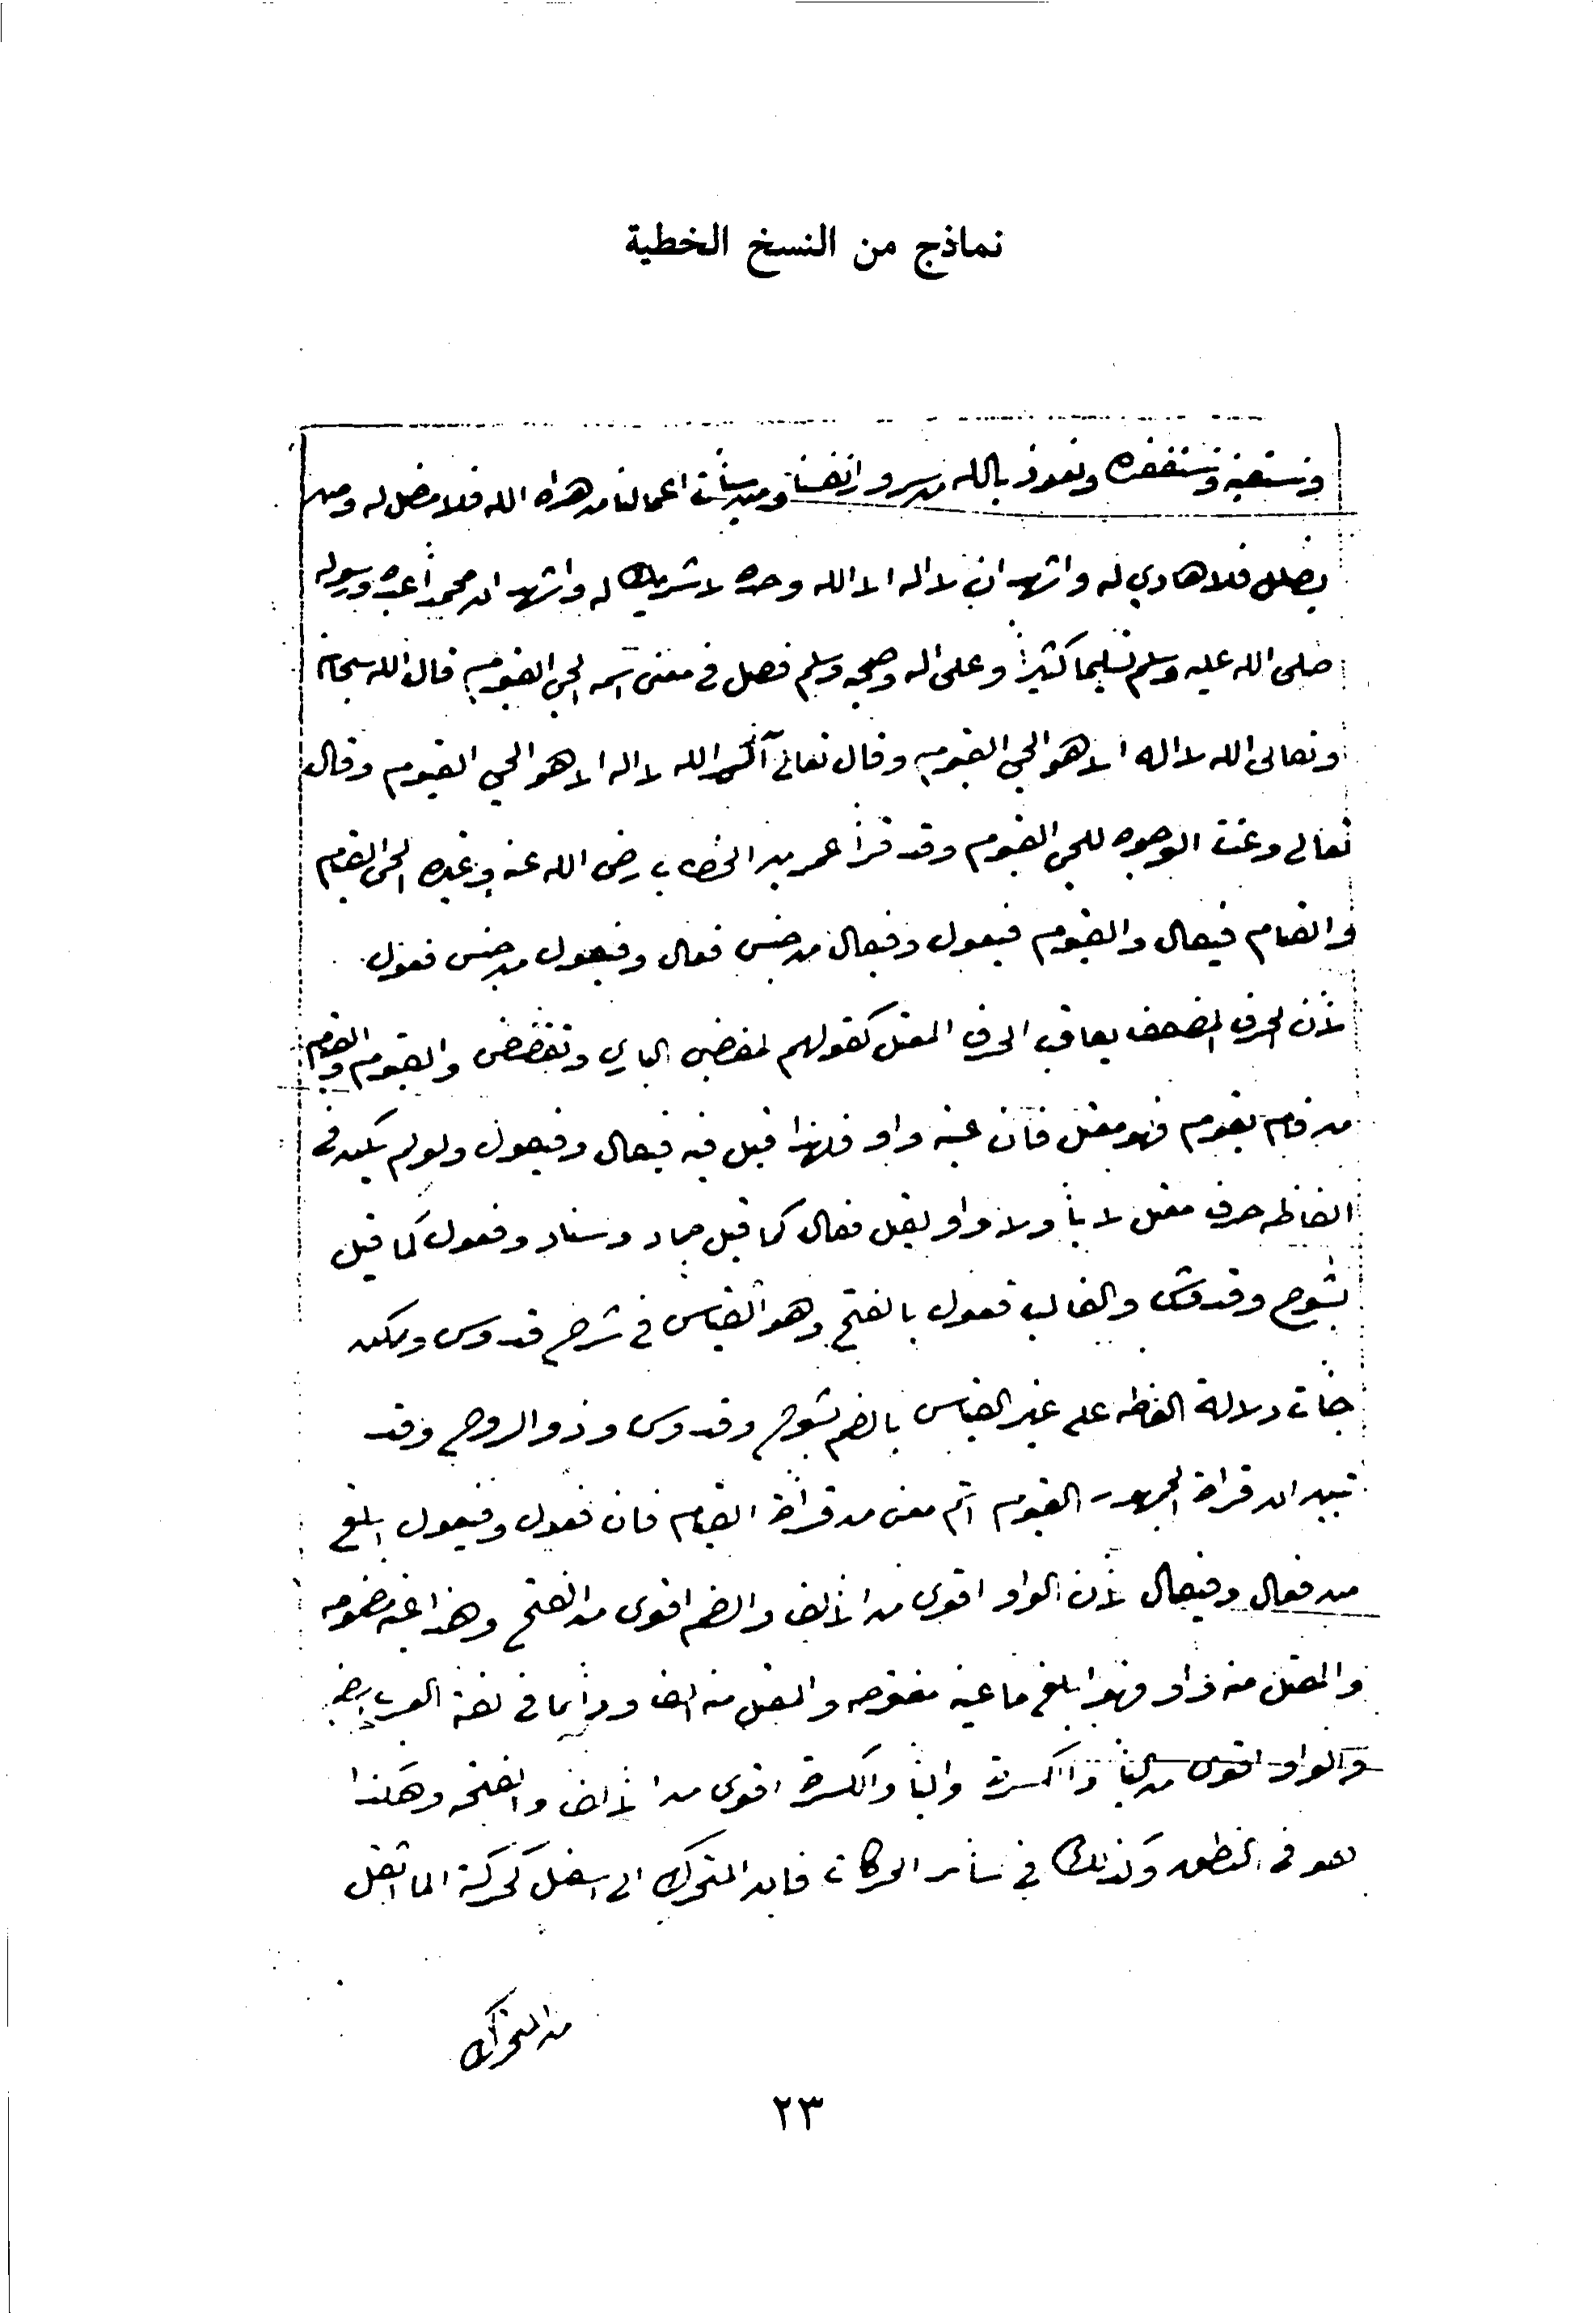 نماذج من النسخ الخطية
ونستعينه ونستغفره ونعوذ بالله من سرور انفسنا ومن سيئات اعمالنا من هداه الله فلا مضل له ومن
يضلل فلا هادي له واشهد ان لا اله الا الله وحده لا شريك له واشهد ان محمداً عبده ورسوله
صلى الله عليه وسلم تسليما كثيراً وعلى اله وصحبه وسلم فصل في معنى اسمه الحي القيوم قال الله سبحانه
وتعالى الله لا اله الا هو الحي القيوم وقال تعالى آلم الله لا اله الا هو الحي القيوم وقال
تعالى وعنت الوجوه للحي القيوم وقد قرأ عمر بن الخطاب رضى الله عنه وغيره الحي القيام
والقيام فيعال والقيوم فيعول وفيعال من جنس فعال وفيعول من جنس فعول
لأن الحرف المضعف يعاقب الحرف المعتل كقولهم تقضى البازي وتقضض والقيوم والقيام
من قام يقوم فهو معتل فان عينه واو فلهذا قيل فيه فيعال وفيعول ولو لم يكن في
الفاظه حرف معتل لا يأ ولا واو لقيل فعال كما قيل حماد وستار وفعول كما قيل
سُبّوح وقدوس والغالب فعول بالفتح وهو القياس في قدوس ولكن
جأت دلالة الفظه على غير القياس بالضم سبوح وقدوس وقد
تبين ان قراة الجمهور القيوم اتم معنى من قرأة القيام فان فعول وفيعول ابلغ
من فعال وفيعال لأن الواو اقوى من الألف والضم اقوى من الفتح وهذا عينه مضمومه
والمعتل منه واو فهو ابلغ مما عينه مفتوحه والمعتل منه الف ودائما في لغة العرب الضم
والواو اقوى من اليأ والكسرة واليأ والكسرة اقوى من الألف والفتحه وهكذا
هو في النطق وكذلك في سائر الحركات فان المتحرك الى اسفل كحركة الما اثقل
من المتحرك
٢٣